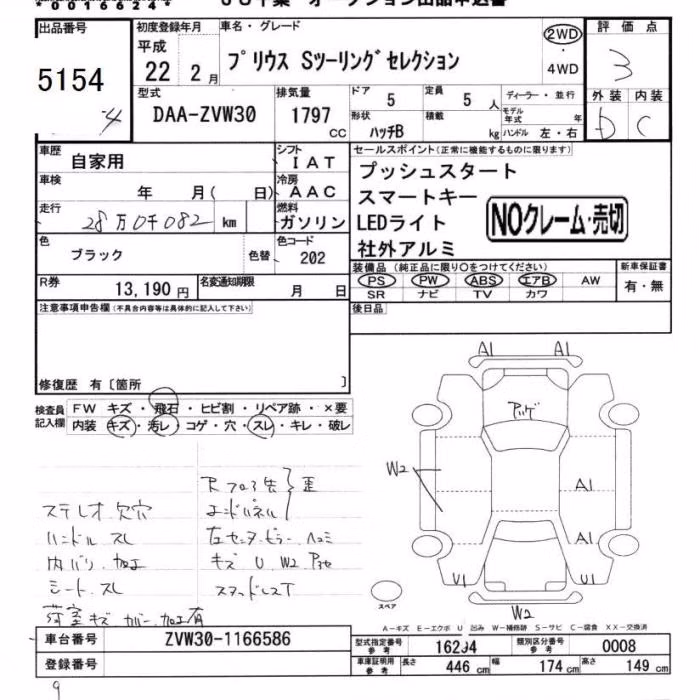 00166244
JU千葉 オークション出品申込書
出品番号
5154
初度登録年月
平成
22 2月
車名・グレード
プリウス Sツーリングセレクション
2WD
4WD
評価点
3
外装 内装
D C
型式
DAA-ZVW30
排気量
1797 CC
ドア
5
定員
5 人
ディーラー・並行
形状
ハッチB
積載
kg
モデル年式 年
ハンドル 左・右
車歴
自家用
シフト
IAT
車検
年 月( 日)
冷房
AAC
走行
28万0千082 km
燃料
ガソリン
色
ブラック
色替
色コード
202
R券
13,190円
名変通知期限
月 日
セールスポイント(正常に機能するものに限ります)
プッシュスタート
スマートキー
LEDライト
社外アルミ
NOクレーム・売切
装備品 (純正品に限り○をつけてください)
PS PW ABS エアB AW
SR ナビ TV カワ
新車保証書
有・無
後日品
注意事項申告欄(不具合内容等は具体的に記入して下さい)
修復歴 有〔箇所 〕
検査員記入欄
FW キズ・飛石・ヒビ割・リペア跡・×要
内装 キズ・汚レ・コゲ・穴・スレ・キレ・破レ
ステレオ欠穴
ハンドル スレ
内バリ 加工
シート スレ
荷室キズ カバー加工有
エンドパネル
歪
左センターピラー ヘコミ
キズ U W2
スタッドレスT
A1 A1
W2
A1
A1
U1 U1
W2
スペア
A-キズ E-エクボ U 凹み W-補修跡 S-サビ C-腐食 XX-交換済
車台番号
ZVW30-1166586
登録番号
型式指定番号 参考
16294
類別区分番号 参考
0008
車庫証明用 参考
長さ 446 cm
幅 174 cm
高さ 149 cm
9